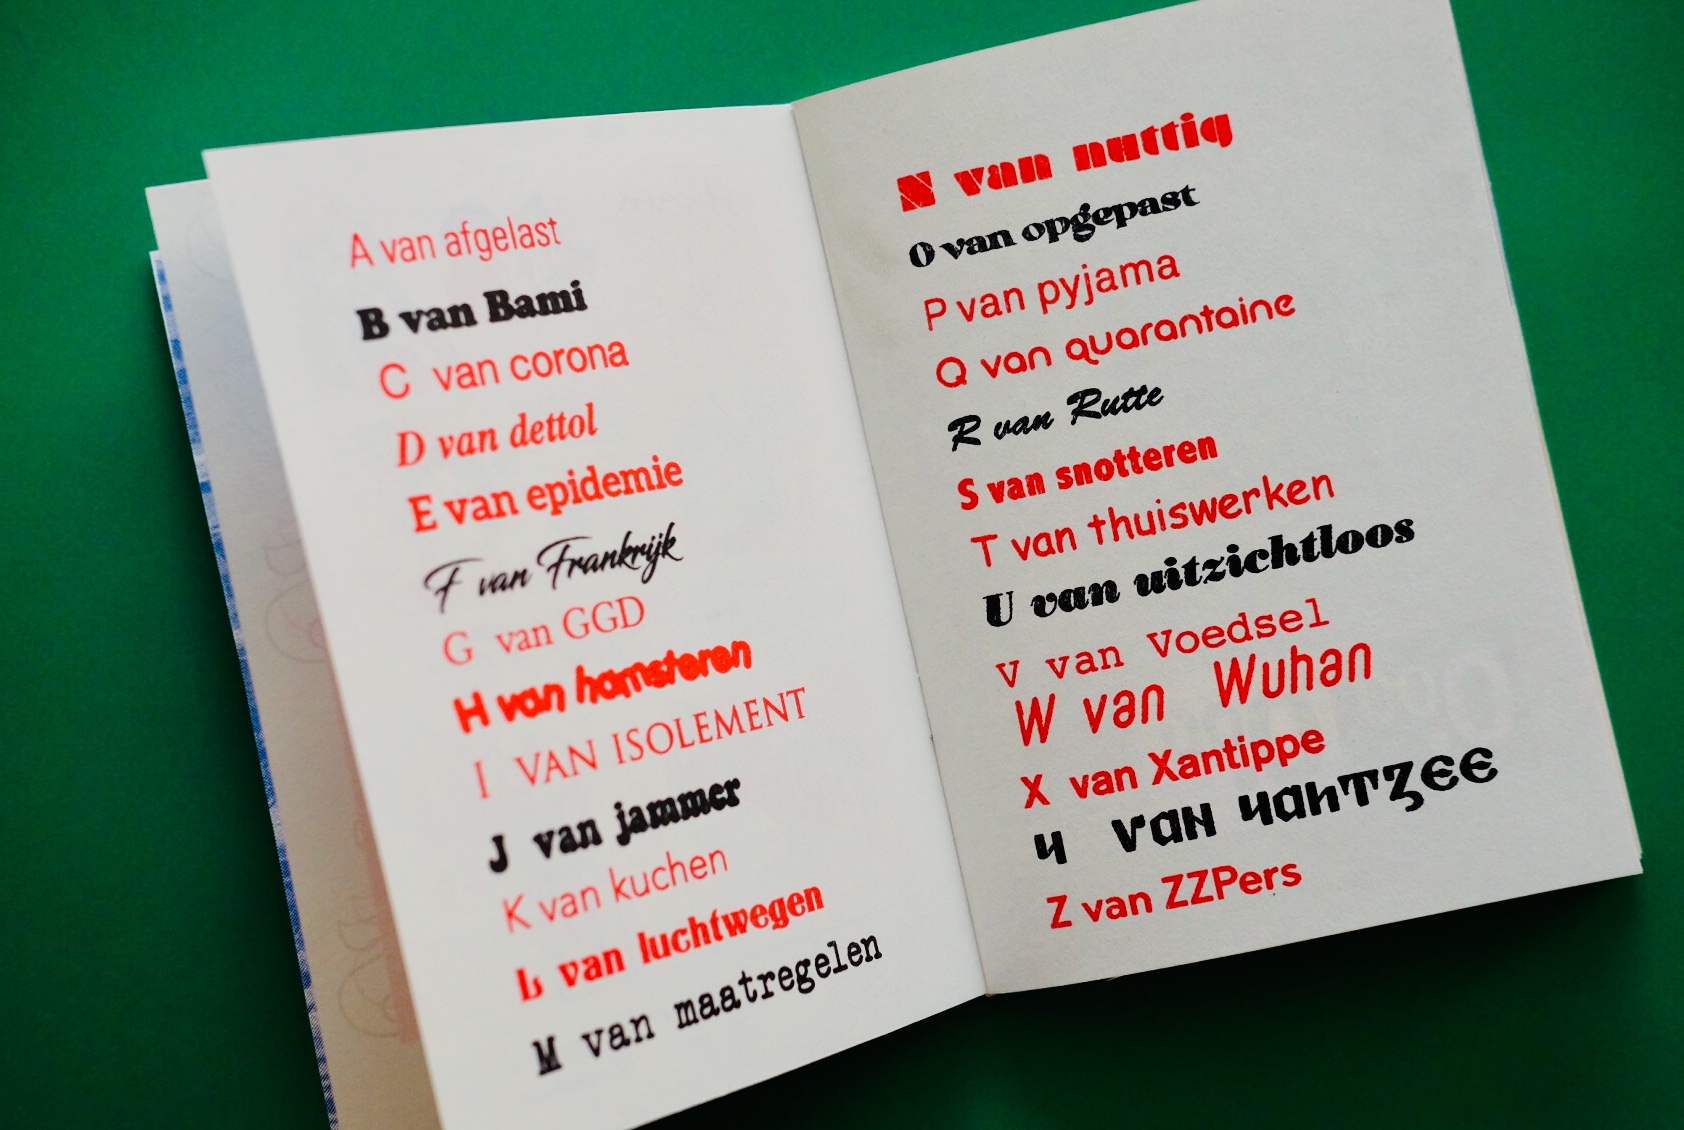 A van afgelast
B van Bami
C van corona
D van dettol
E van epidemie
F van Frankrijk
G van GGD
H van hamsteren
I VAN ISOLEMENT
J van jammer
K van kuchen
L van luchtwegen
M van maatregelen
N van nuttig
O van opgepast
P van pyjama
Q van quarantaine
R van Rutte
S van snotteren
T van thuiswerken
U van uitzichtloos
V van Voedsel
W van Wuhan
X van Xantippe
Y van Yahtzee
Z van ZZPers